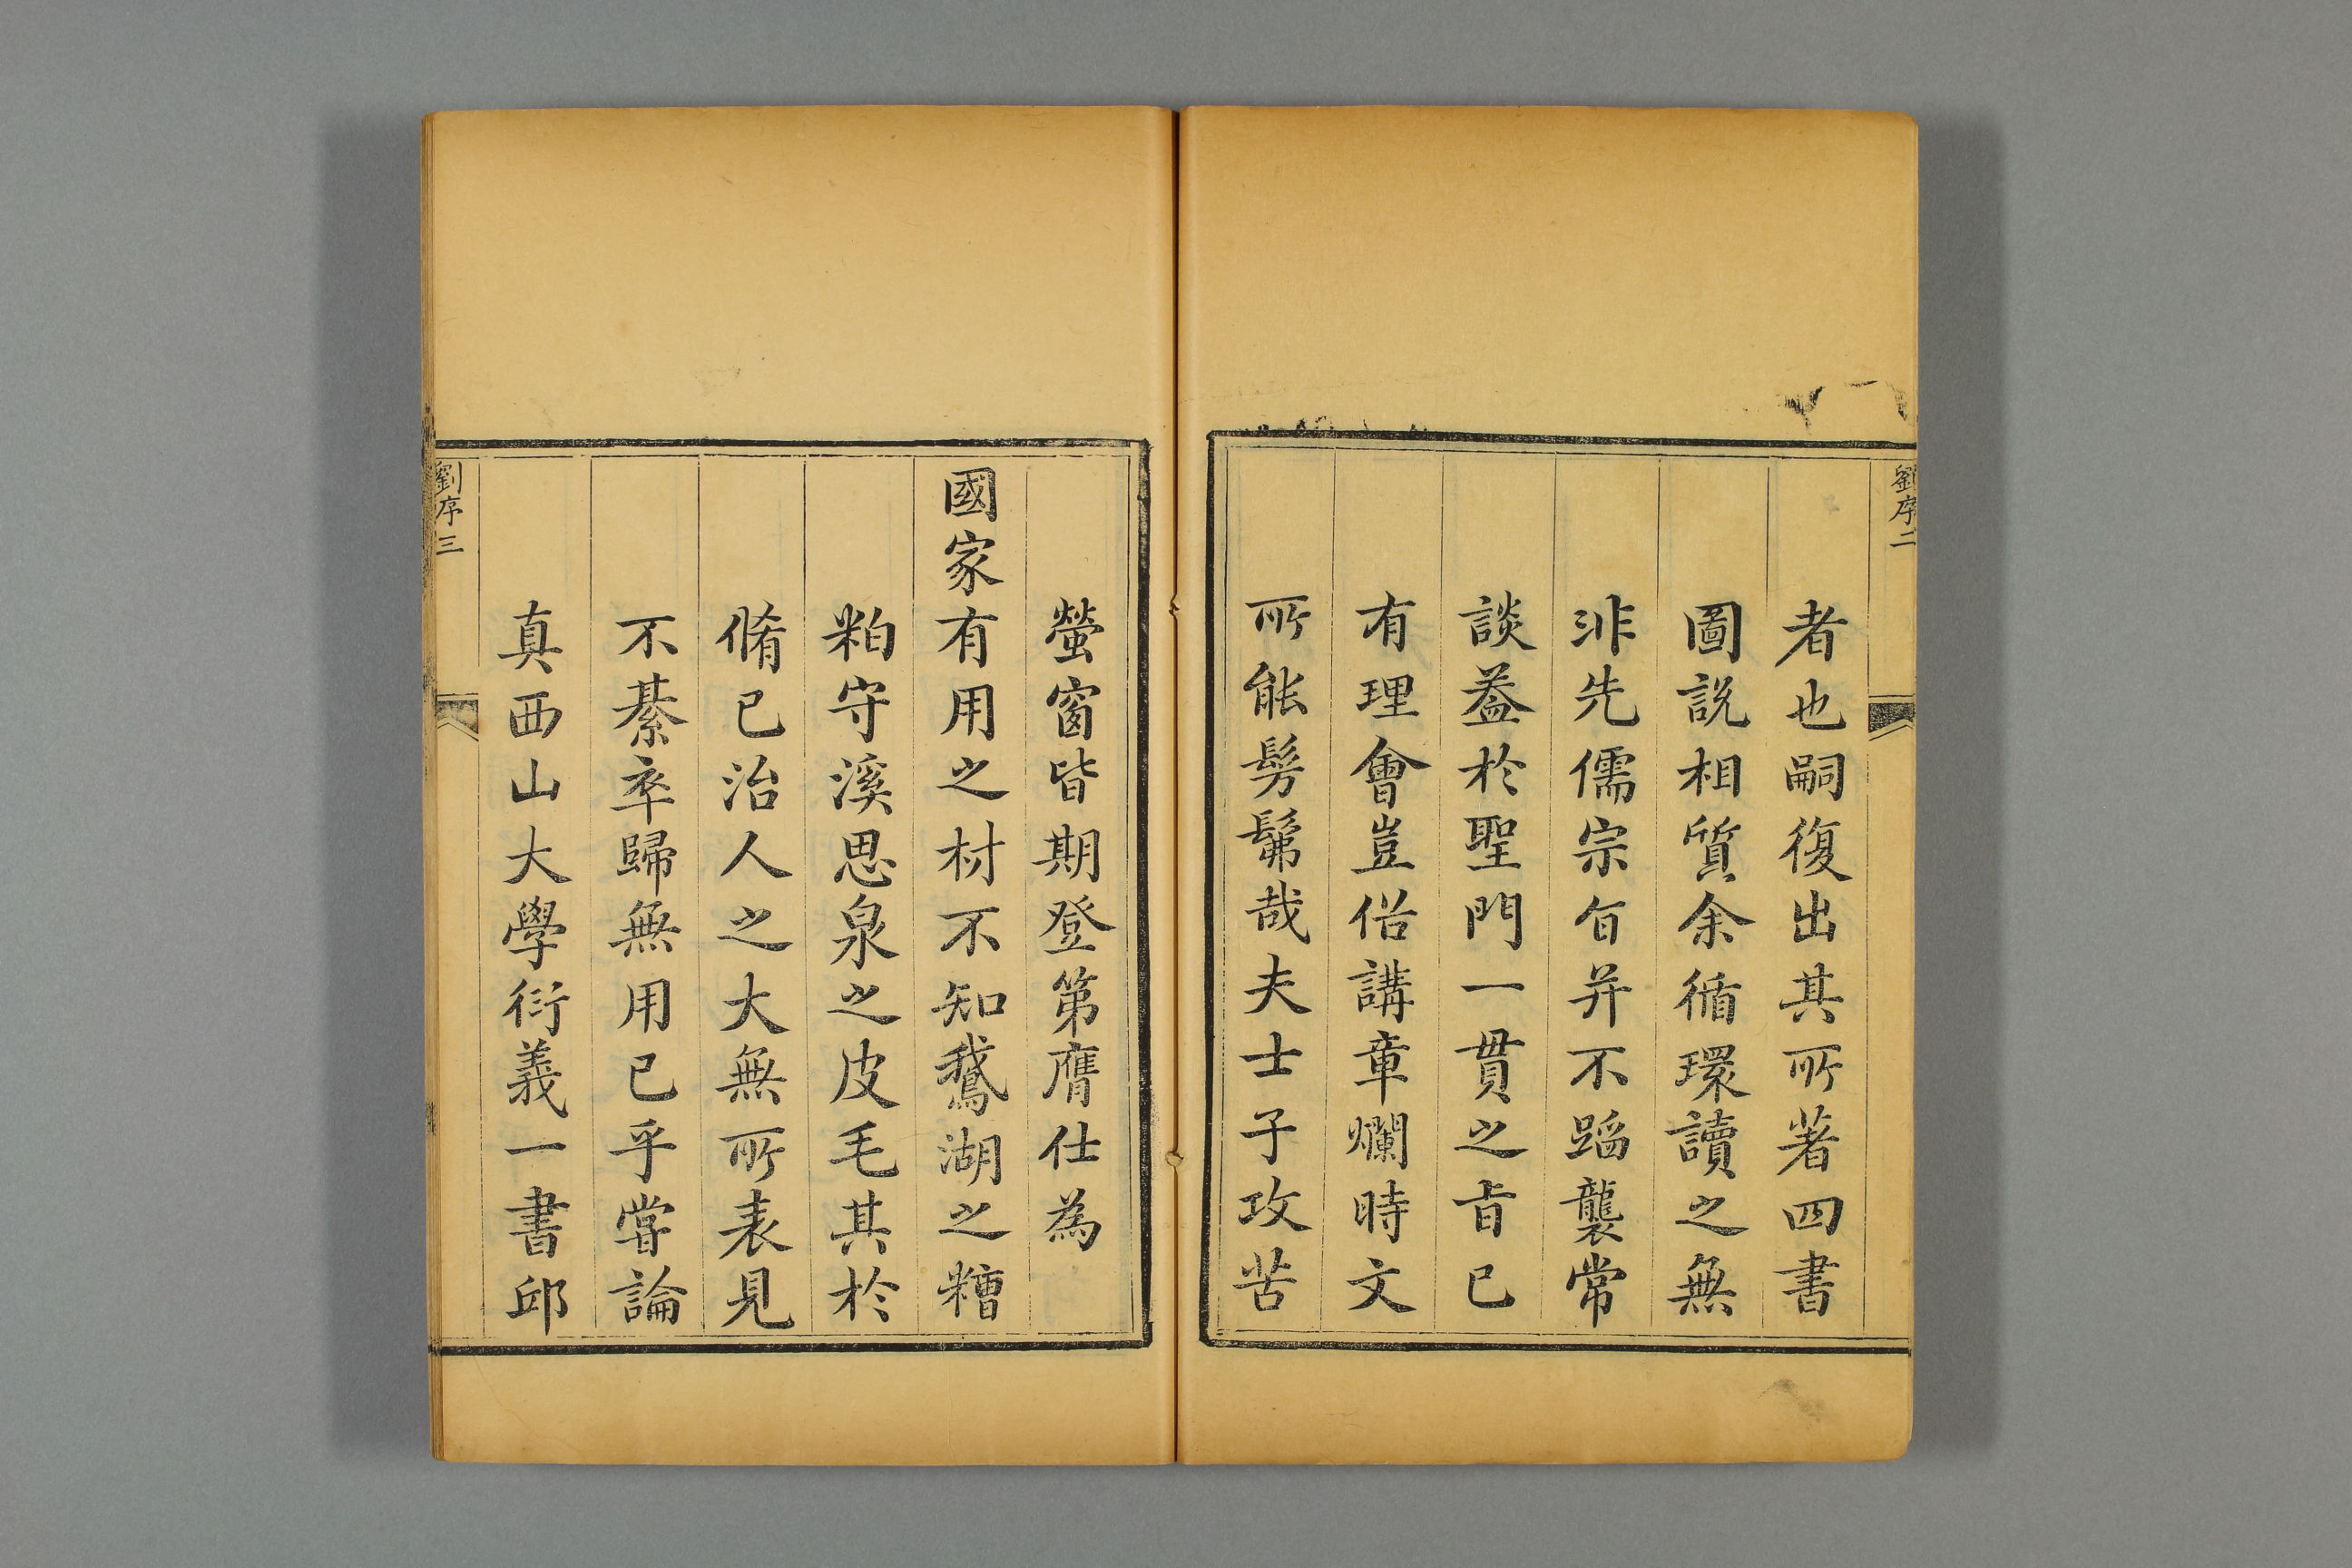 劉序二
者也嗣復出其所著四書
圖說相質余循環讀之無
非先儒宗旨并不蹈襲常
談葢於聖門一貫之旨已
有理會豈俗講章爛時文
所能髣髴哉夫士子攻苦
螢窗皆期登第膺仕為
國家有用之材不知鵞湖之糟
粕守溪思泉之皮毛其於
脩已治人之大無所表見
不綦卒歸無用已乎嘗論
真西山大學衍義一書邱
劉序三